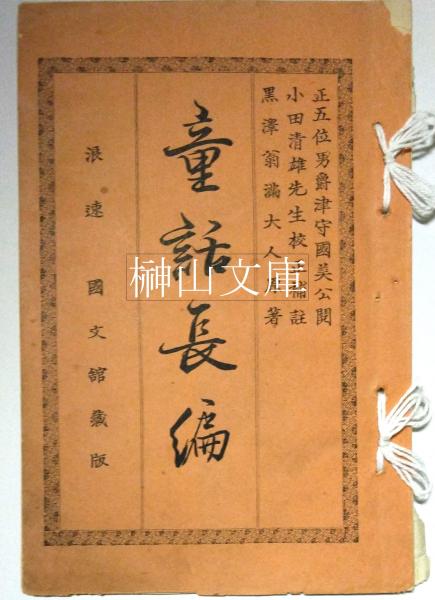 正五位男爵津守國美公閲
小田清雄先生校正補註
黒澤翁満大人原著
童話長編
浪速 國文館蔵版
榊山文庫